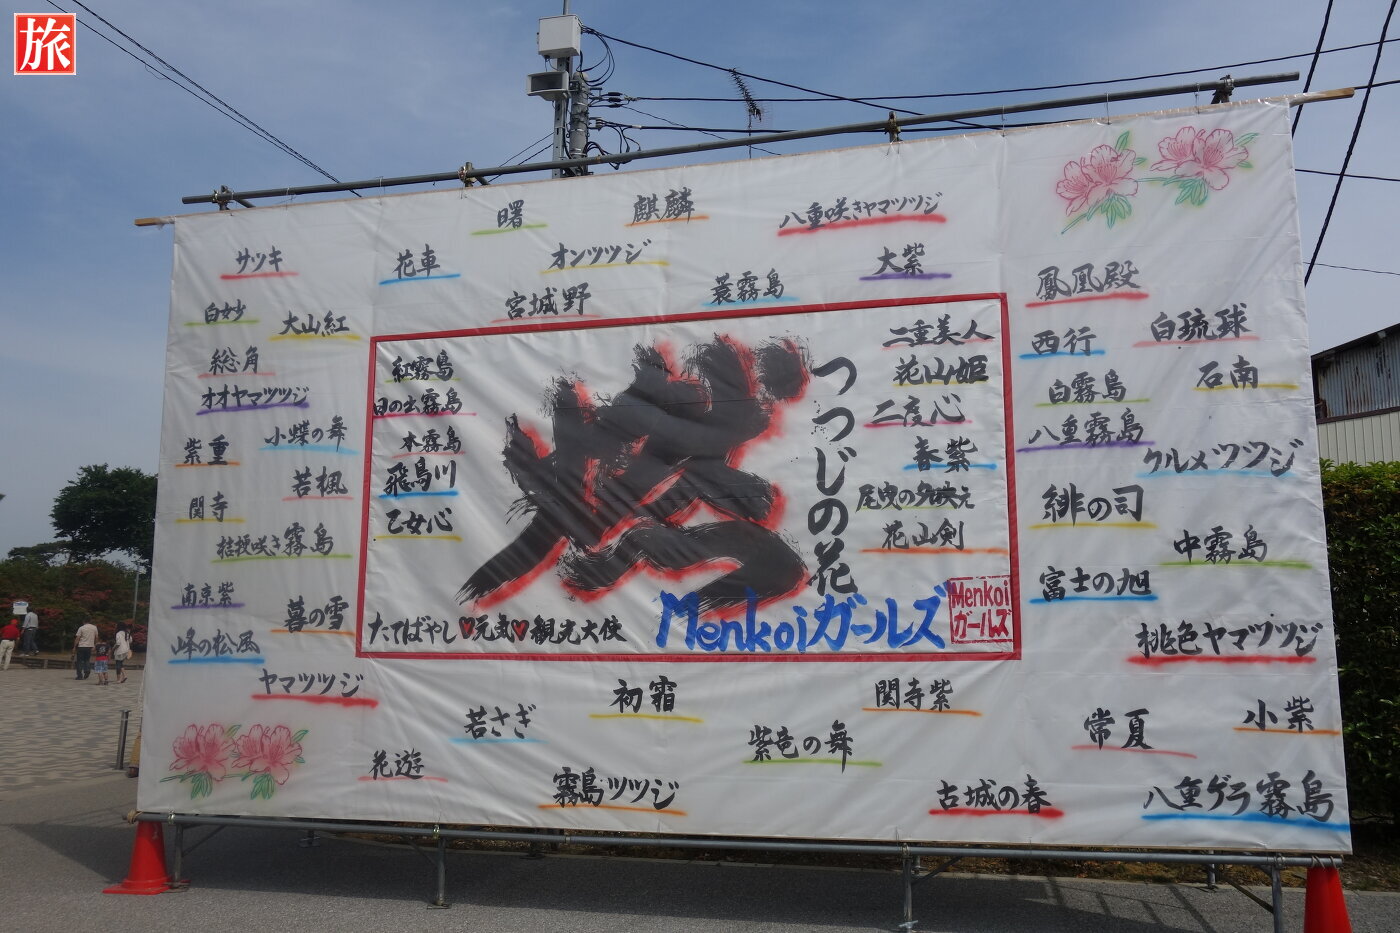 旅
曙
麒麟
八重咲きヤマツツジ
サツキ
花車
オンツツジ
大紫
宮城野
蓑霧島
鳳凰殿
白妙
大山紅
西行
白琉球
総角
白霧島
石南
オオヤマツツジ
八重霧島
紫重
小蝶の舞
クルメツツジ
若楓
緋の司
関寺
桔梗咲き霧島
中霧島
南京紫
暮の雪
富士の旭
峰の松風
桃色ヤマツツジ
紅霧島
日の出霧島
本霧島
飛鳥川
乙女心
燃
つつじの花
二重美人
花山姫
二度心
春紫
尾曳の夕映え
花山剣
たてばやし♥元気♥観光大使
Menkoiガールズ
Menkoi
ガールズ
ヤマツツジ
初霜
関寺紫
若さぎ
紫竜の舞
常夏
小紫
花遊
霧島ツツジ
古城の春
八重ゲラ霧島